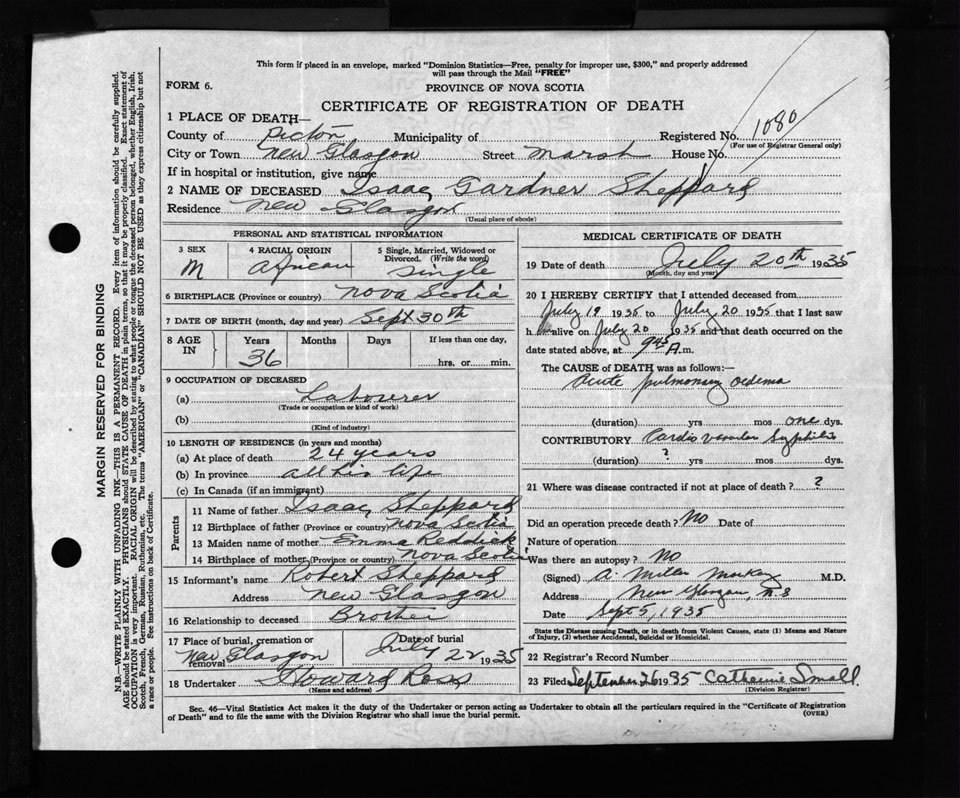 This form if placed in an envelope, marked "Dominion Statistics—Free, penalty for improper use, $300," and properly addressed
will pass through the Mail "FREE"
FORM 6.
PROVINCE OF NOVA SCOTIA
CERTIFICATE OF REGISTRATION OF DEATH
1 PLACE OF DEATH—
County of Pictou Municipality of Registered No. 1080
(For use of Registrar General only)
City or Town New Glasgow Street Marsh House No.
If in hospital or institution, give name
2 NAME OF DECEASED Isaac Gardner Sheppard
Residence New Glasgow
(Usual place of abode)
PERSONAL AND STATISTICAL INFORMATION
3 SEX 4 RACIAL ORIGIN 5 Single, Married, Widowed or
Divorced. (Write the word)
M African Single
6 BIRTHPLACE (Province or country) Nova Scotia
7 DATE OF BIRTH (month, day and year) Sept 30th
8 AGE IN Years Months Days If less than one day,
36 hrs. or min.
9 OCCUPATION OF DECEASED
(a) Labourer
(Trade or occupation or kind of work)
(b)
(Kind of industry)
10 LENGTH OF RESIDENCE (in years and months)
(a) At place of death 24 years
(b) In province all his life
(c) In Canada (if an immigrant)
Parents
11 Name of father Isaac Sheppard
12 Birthplace of father (Province or country) Nova Scotia
13 Maiden name of mother Emma Reddick
14 Birthplace of mother (Province or country) Nova Scotia
15 Informant's name Robert Sheppard
Address New Glasgow
16 Relationship to deceased Brother
17 Place of burial, cremation or removal Date of burial
New Glasgow July 22 1935
18 Undertaker Howard Ross
(Name and address)
MEDICAL CERTIFICATE OF DEATH
19 Date of death July 20th 1935
(Month, day and year)
20 I HEREBY CERTIFY that I attended deceased from
July 19 1935 to July 20 1935 that I last saw
h alive on July 20 1935 and that death occurred on
date stated above, at 9.45 A.m.
The CAUSE of DEATH was as follows:—
Acute pulmonary oedema
(duration) yrs mos one dys.
CONTRIBUTORY Cardio vascular Syphilis
(duration) ? yrs mos dys.
21 Where was disease contracted if not at place of death? ?
Did an operation precede death? No Date of
Nature of operation
Was there an autopsy? No
(Signed) A. M.D.
Address New Glasgow, N.S
Date Sept 5, 1935
State the Disease causing Death, or in death from Violent Causes, state (1) Means and Nature
of Injury, (2) whether Accidental, Suicidal or Homicidal.
22 Registrar's Record Number
23 Filed September 26 1935 Catherine Small
(Division Registrar)
Sec. 46—Vital Statistics Act makes it the duty of the Undertaker or person acting as Undertaker to obtain all the particulars required in the "Certificate of Registration
of Death" and to file the same with the Division Registrar who shall issue the burial permit.
(OVER)
MARGIN RESERVED FOR BINDING
N.B.—WRITE PLAINLY WITH UNFADING INK—THIS IS A PERMANENT RECORD. Every item of information should be carefully supplied.
AGE should be stated EXACTLY. PHYSICIANS should STATE CAUSE OF DEATH in plain terms, so that it may be properly classified. Exact statement of
OCCUPATION is very important. RACIAL ORIGIN will be described by stating to what people or tongue the deceased person belonged, whether English, Irish,
Scotch, French, German, Russian, Ruthenian, etc. The terms "AMERICAN" or "CANADIAN" SHOULD NOT BE USED as they express citizenship but not
a race or people. See instructions on back of Certificate.